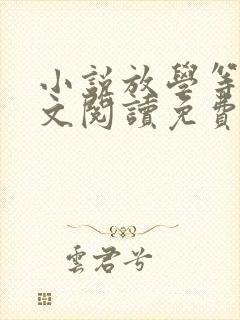 小說放學等
文閱讀免費
雲君兮